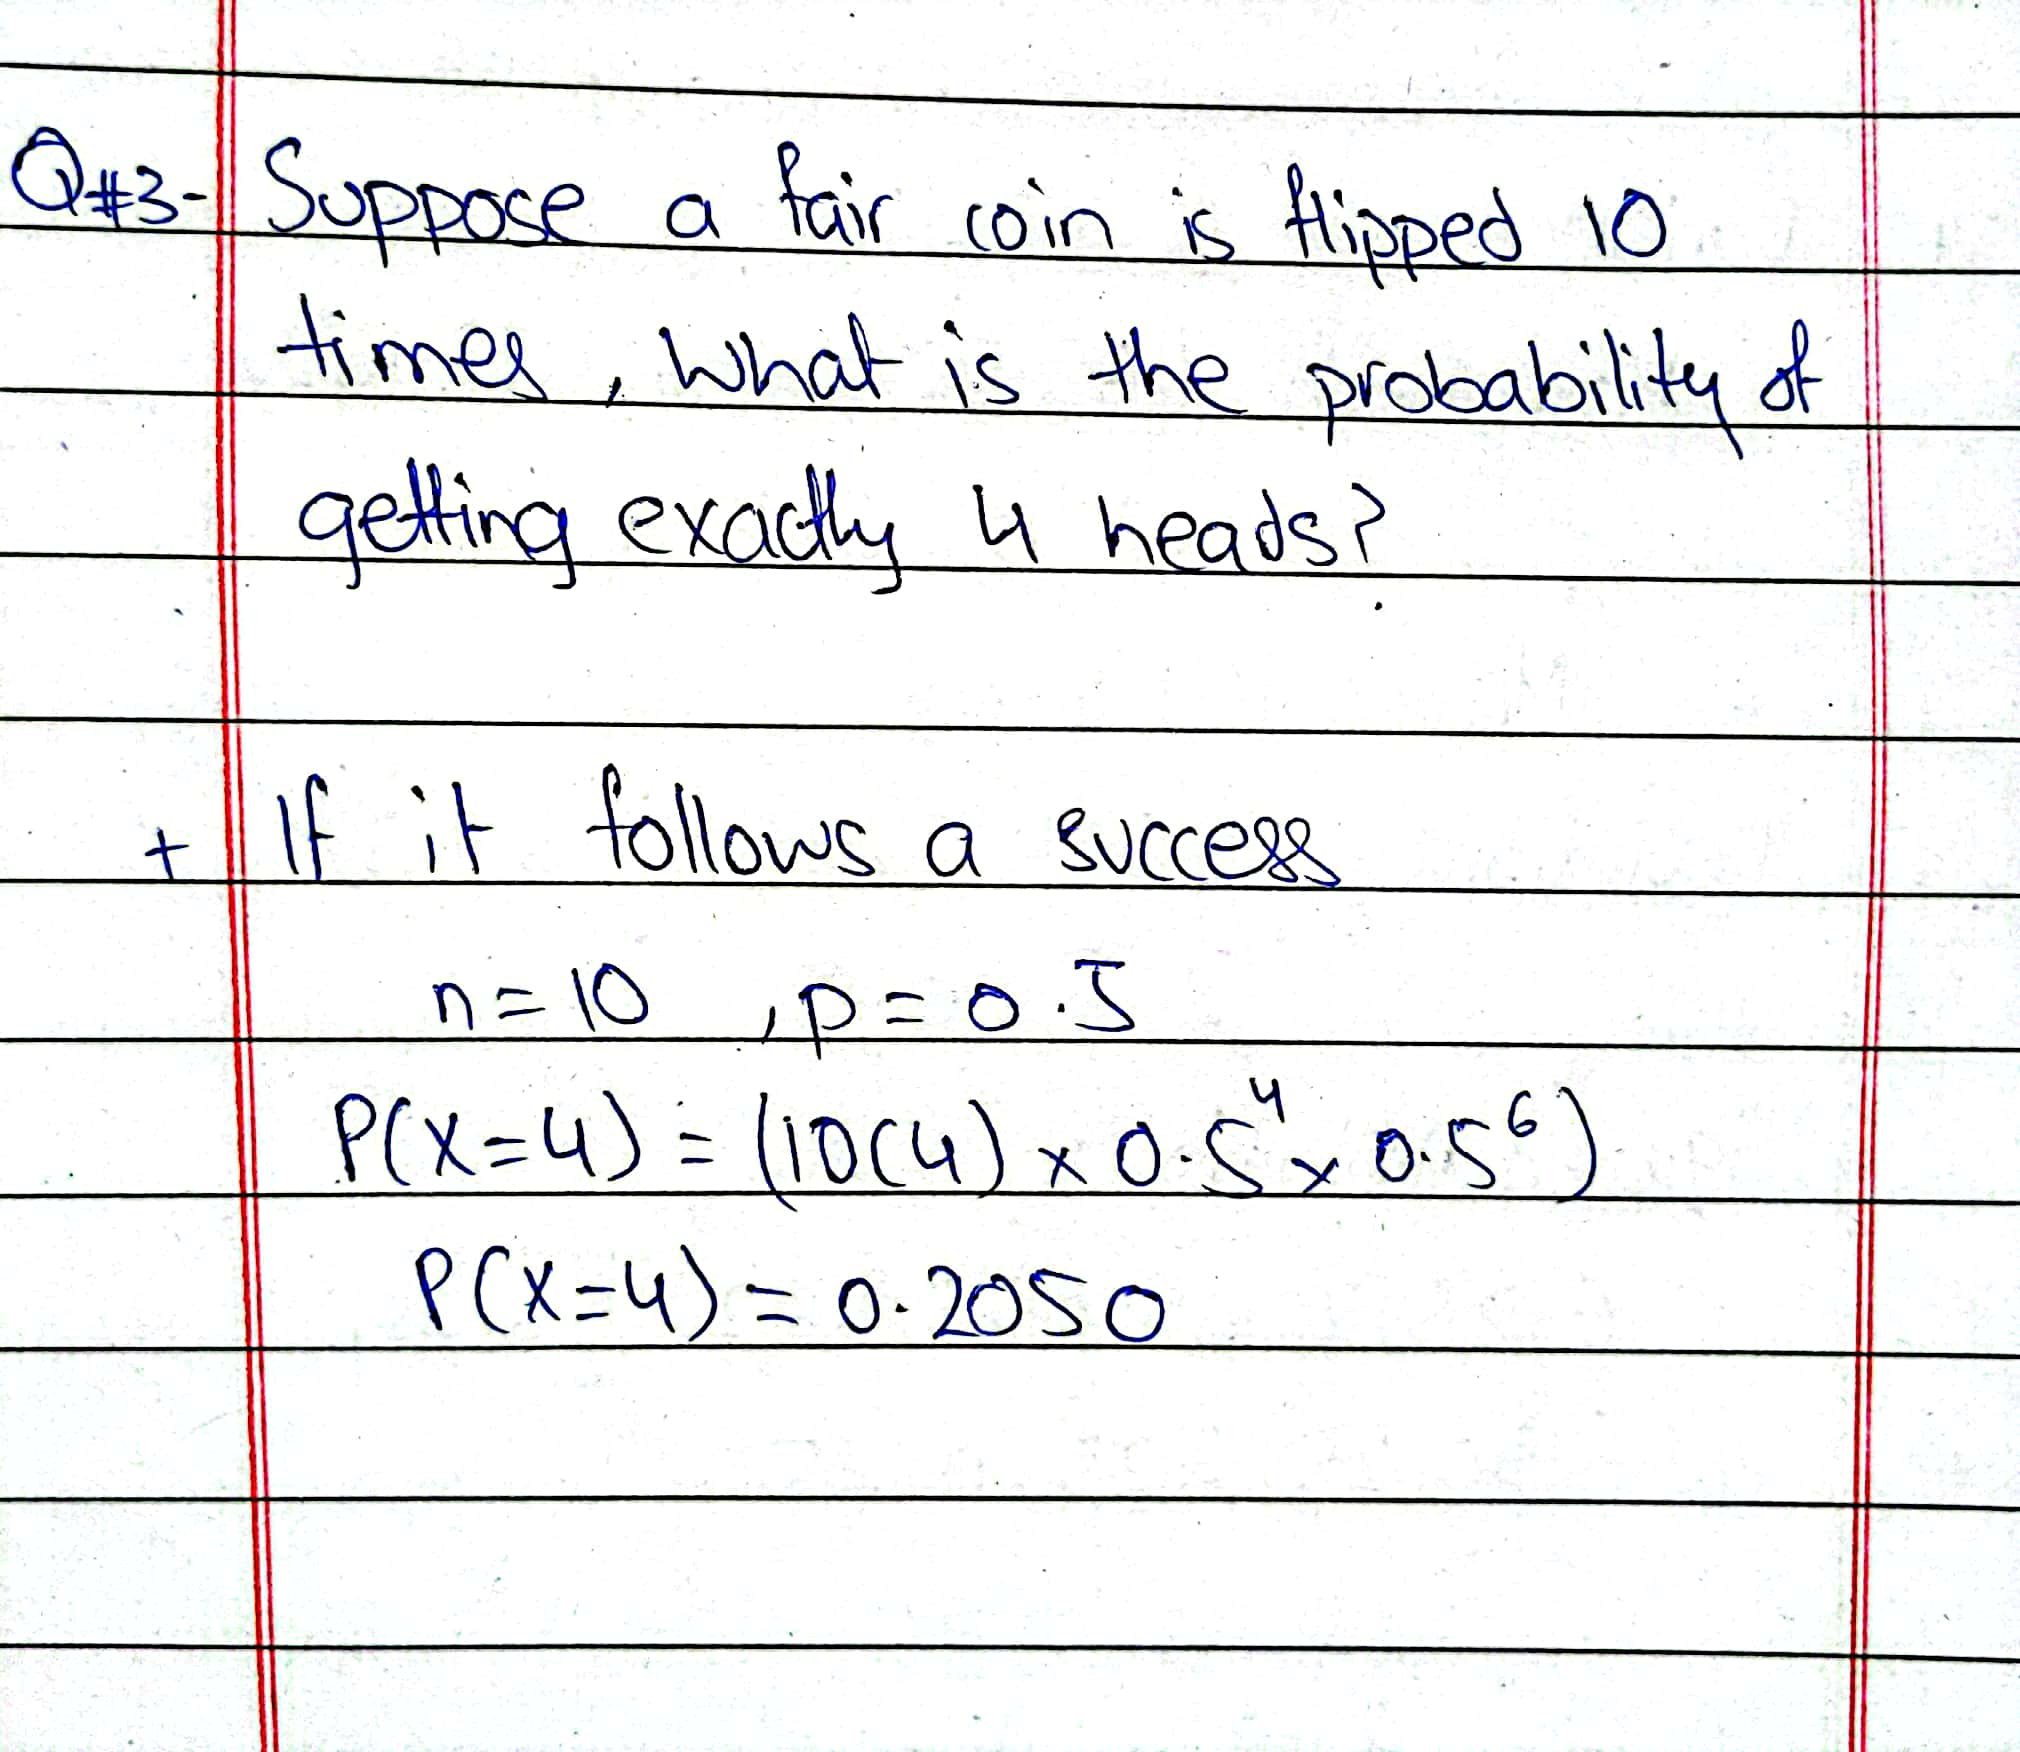 Q#3- Suppose a fair coin is flipped 10
times, what is the probability of
getting exactly 4 heads?
+ If it follows a success
n=10 , p=0.5
P(X=4) = (10C4) x 0.5⁴ x 0.5⁶)
P(X=4) = 0.2050